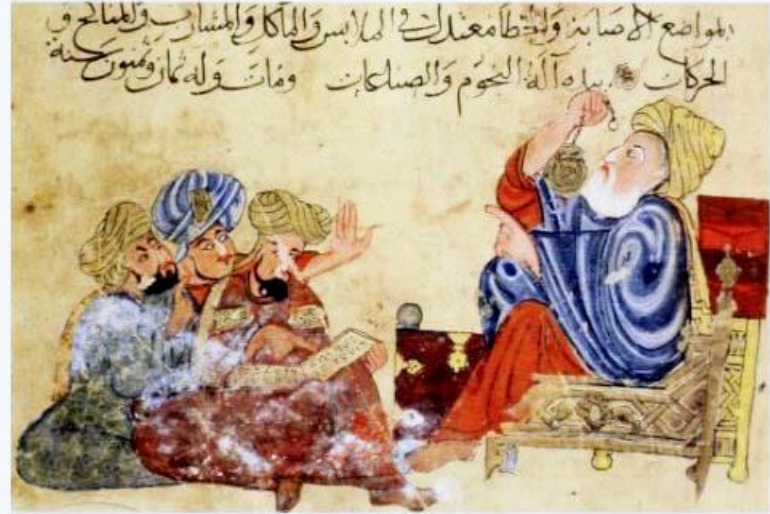 بمواضع الاصابة والخطأ معتدل في الملابس والمآكل والمشارب والمناكح و
الحركات بيده آلة النجوم والصناعات ومات وله ثمان وستون سنة